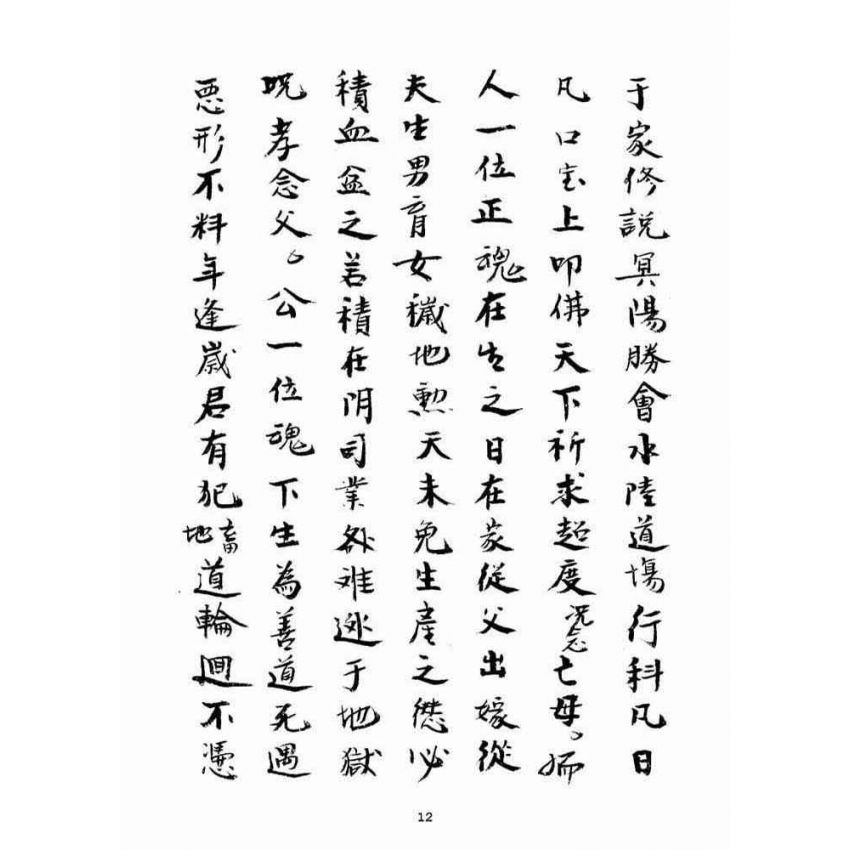 于家修説冥陽勝會水陸道場行科凡日
凡口宝上叩佛天下祈求超度況念亡母。孺
人一位正魂在生之日在家從父出嫁從
夫生男育女穢地勲天未免生產之愆必
積血盆之若積在阴司業難迯于地獄
呪孝念父。公一位魂下生為善道死遇
悪形不料年逢歳君有犯畜地道輪迴不憑
12